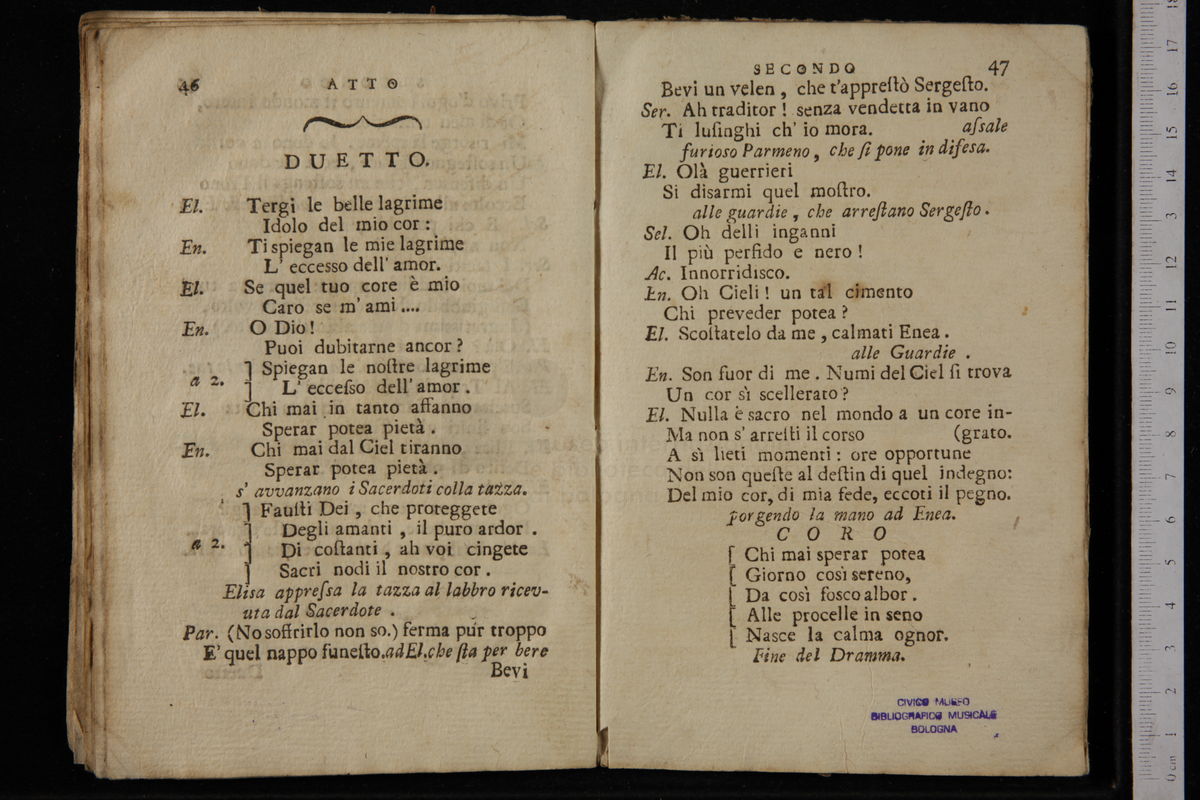 46 ATTO
DUETTO.
El. Tergi le belle lagrime
Idolo del mio cor:
En. Ti spiegan le mie lagrime
L' eccesso dell' amor.
El. Se quel tuo core è mio
Caro se m' ami....
En. O Dio!
Puoi dubitarne ancor?
Spiegan le noſtre lagrime
a 2.
L' ecceſso dell' amor.
El. Chi mai in tanto affanno
Sperar potea pietà.
En. Chi mai dal Ciel tiranno
Sperar potea pietà.
s' avvanzano i Sacerdoti colla tazza.
Fauſti Dei, che proteggete
Degli amanti, il puro ardor.
a 2. Di coſtanti, ah voi cingete
Sacri nodi il nostro cor.
Elisa appreſsa la tazza al labbro ricev-
uta dal Sacerdote.
Par. (No soffrirlo non so.) ferma pur troppo
E' quel nappo funeſto. ad El. che ſta per bere
Bevi
SECONDO 47
Bevi un velen, che t'appreſtò Sergeſto.
Ser. Ah traditor! senza vendetta in vano
Ti luſinghi ch' io mora. aſsale
furioso Parmeno, che ſi pone in difesa.
El. Olà guerrieri
Si disarmi quel moſtro.
alle guardie, che arreſtano Sergeſto.
Sel. Oh delli inganni
Il più perfido e nero!
Ac. Innorridisco.
En. Oh Cieli! un tal cimento
Chi preveder potea?
El. Scoſtatelo da me, calmati Enea.
alle Guardie.
En. Son fuor di me. Numi del Ciel ſi trova
Un cor sì scellerato?
El. Nulla è sacro nel mondo a un core in-
Ma non s' arreſti il corso (grato.
A sì lieti momenti: ore opportune
Non son queſte al deſtin di quel indegno:
Del mio cor, di mia fede, eccoti il pegno.
porgendo la mano ad Enea.
CORO
Chi mai sperar potea
Giorno così sereno,
Da così fosco albor.
Alle procelle in seno
Nasce la calma ognor.
Fine del Dramma.
CIVICO MUSEO
BIBLIOGRAFICO MUSICALE
BOLOGNA
0 cm 1 2 3 4 5 6 7 8 9 10 11 12 13 14 15 16 17 18